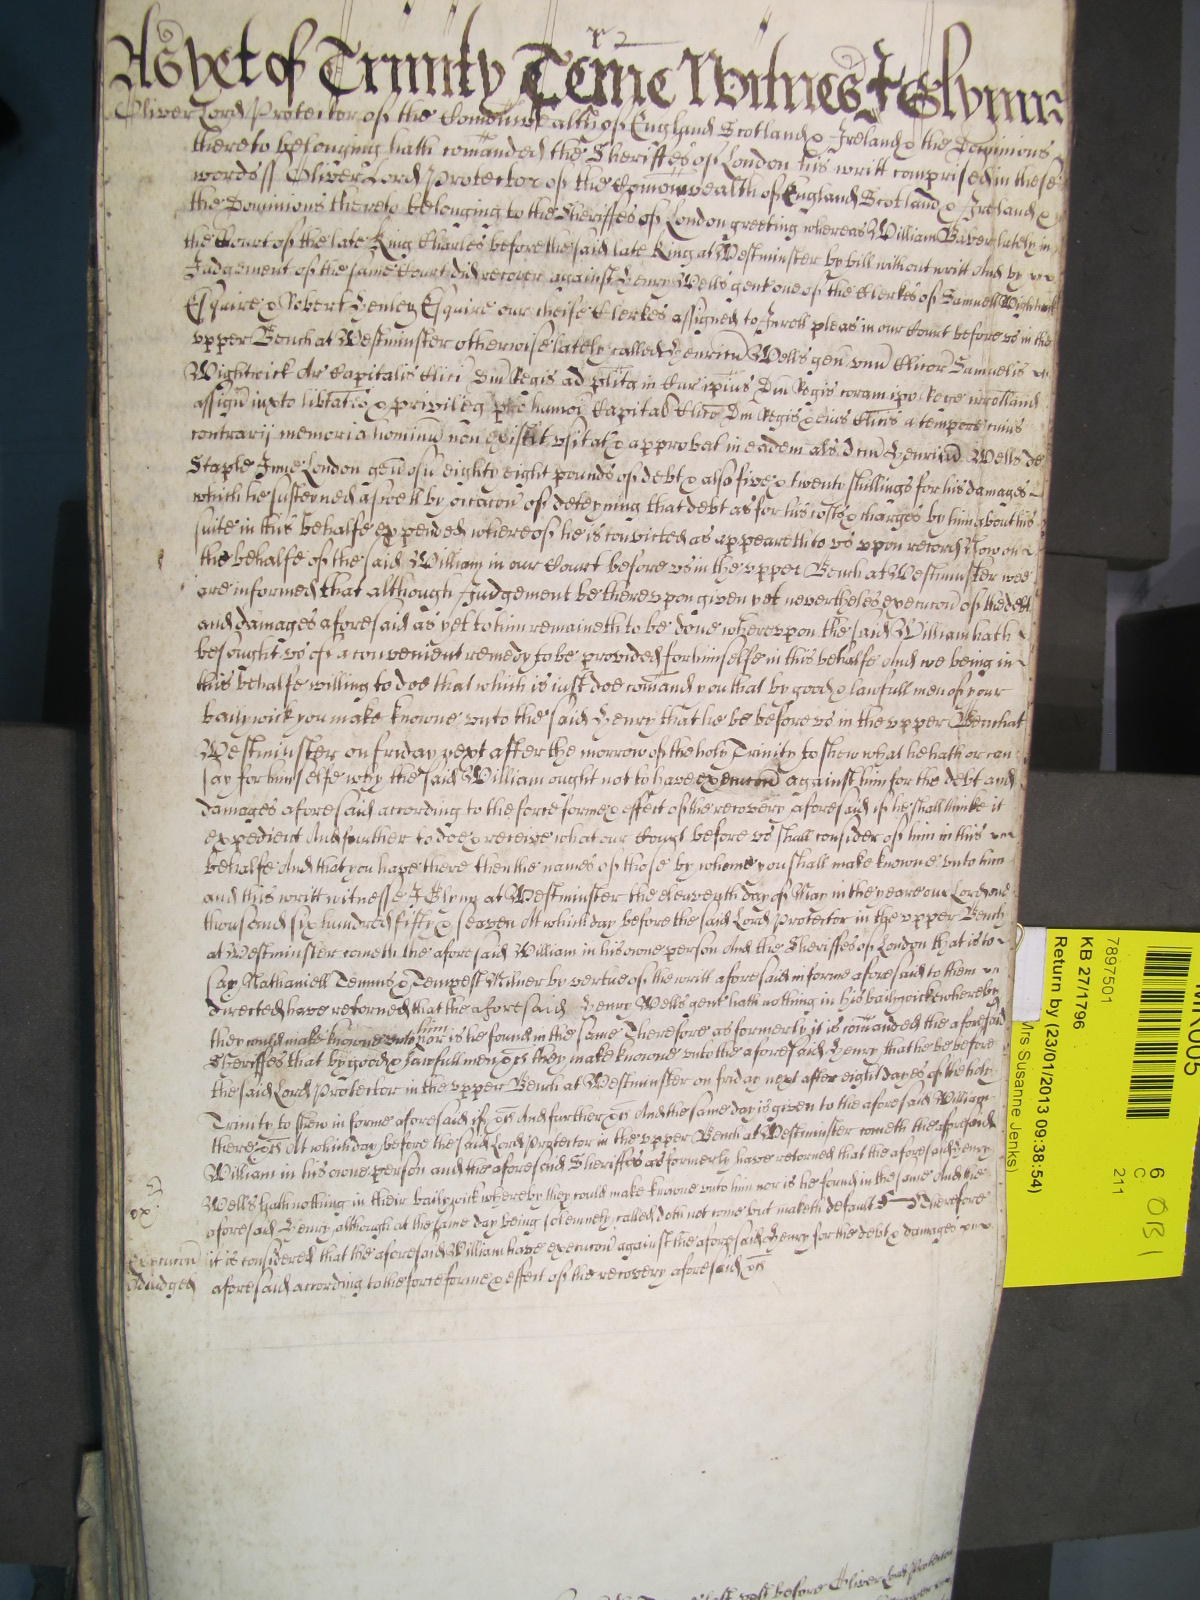 As yet of Trinity Terme Witnes J Glynn
Oliver Lord Protector of the Comonwealth of England Scotland & Ireland & the Dominions
thereto belonging hath comanded the Sheriffes of London his writt comprised in these
words ss Oliver Lord Protector of the Comonwealth of England Scotland & Ireland &
the Dominions thereto belonging to the Sheriffes of London greeting whereas William Baber lately in
the Court of the late King Charles before the said late King at Westminster by bill without writt And by
Judgement of the same Court did recover against Henry Wells gent one of the Clerkes of Samuell Wightwick
Esquire & Robert Henley Esquire our cheife Clerkes assigned to Inroll pleas in our Court before us in the
upper Bench at Westminster otherwise lately called Henricu Wells gen unu Clicor Samuelis
Wightwick Ar Capitalis Clici Dni Regis ad plita in Cur ipius Dni Regis coram ipo Rege irrotland
assign iuxta libtates & privileg pro humoi Capital Clico Dni Regis & eius Clicis a tempore cuius
contrarij memoria hominu non existit usitat & approbat in eadem als dcm Henricu Wells de
Staple Inne London gen of eighty eight pounds of debt & also five & twenty shillings for his damages
which he susteyned aswell by occacon of deteyning that debt as for his costs & charges by him about his
suite in this behalfe expended whereof he is convicted as appeareth to us upon record Now on
the behalfe of the said William in our Court before us in the upper Bench at Westminster wee
are informed that although Judgement be thereupon given yet nevertheles execucon of the debt
and damages aforesaid as yet to him remaineth to be done whereupon the said William hath
besought us of a convenient remedy to be provided for himselfe in this behalfe And we being in
this behalfe willing to doe that which is iust doe comand you that by good & lawfull men of your
bailywick you make knowne unto the said Henry that he be before us in the upper Bench at
Westminster on friday next after the morrow of the holy Trinity to shew what he hath or can
say for himselfe why the said William ought not to have execucon against him for the debt and
damages aforesaid according to the force forme & effect of the recovery aforesaid if he shall thinke it
expedient And further to doe & receive what our Court before us shall consider of him in this
behalfe And that you have there then the names of those by whome you shall make knowne unto him
and this writt witnesse J Glynn at Westminster the eleaventh day of May in the yeare our Lord one
thousand six hundred fifty & seaven At which day before the said Lord Protector in the upper Bench
at Westminster cometh the aforesaid William in his owne person And the Sheriffes of London that is to
say Nathaniell Temms & Tempest Milner by vertue of the writt aforesaid in forme aforesaid to them
directed have retorned that the aforesaid Henry Wells gent hath nothing in his bailywick whereby
they could make knowne unto him nor is he found in the same Therefore as formerly it is comanded the aforesaid
Sheriffes that by good & lawfull men &c they make knowne unto the aforesaid Henry that he be before
the said Lord Protector in the upper Bench at Westminster on friday next after eight dayes of the holy
Trinity to shew in forme aforesaid if &c And further &c And the same day is given to the aforesaid William
there &c At which day before the said Lord Protector in the upper Bench at Westminster cometh the aforesaid
William in his owne person and the aforesaid Sheriffes as formerly have retorned that the aforesaid Henry
Wells hath nothing in their bailywick whereby they could make knowne unto him nor is he found in the same And the
aforesaid Henry although at the same day being solemnely called doth not come but maketh default Therefore
execucon
Adiudged
it is considered that the aforesaid William have execucon against the aforesaid Henry for the debt & damages
aforesaid according to the force forme & effect of the recovery aforesaid &c
before Oliver Lord Protector
7897501
KB 27/1796
Return by (23/01/2013 09:38:54)
Mrs Susanne Jenks)
6
C
211
OB1